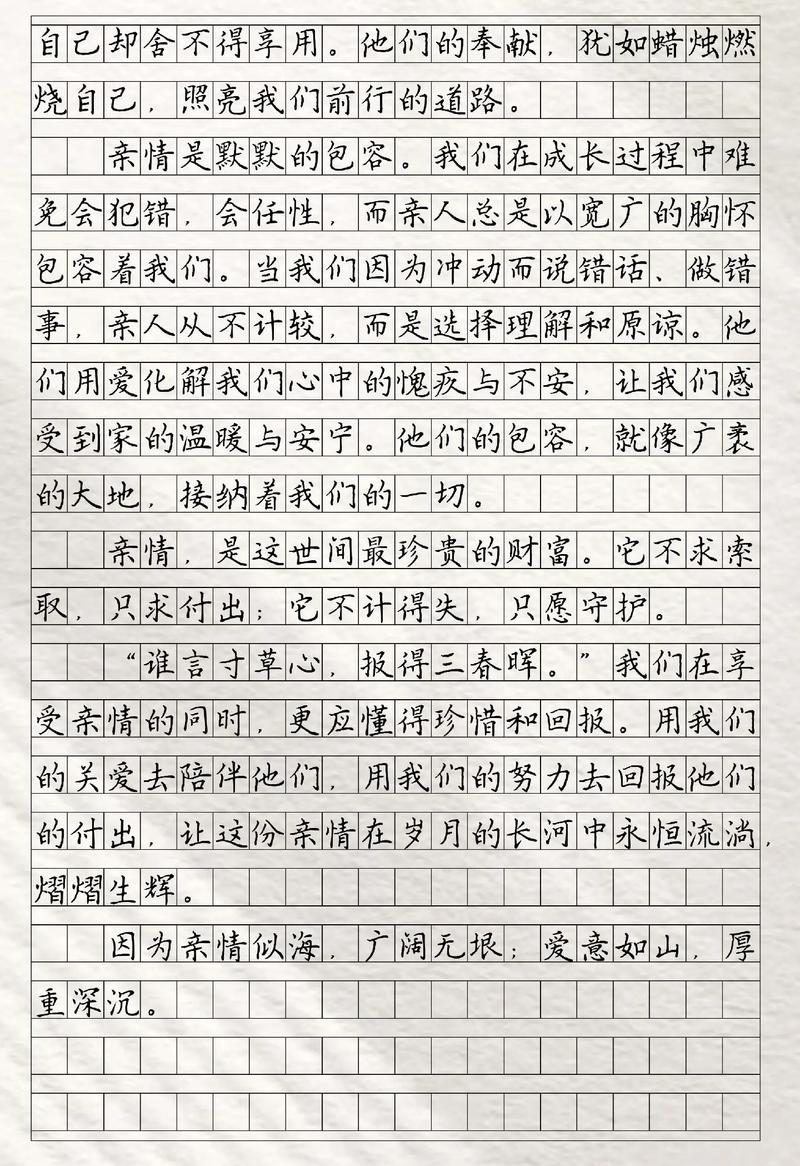 自己却舍不得享用。他们的奉献，犹如蜡烛燃
烧自己，照亮我们前行的道路。
亲情是默默的包容。我们在成长过程中难
免会犯错，会任性，而亲人总是以宽广的胸怀
包容着我们。当我们因为冲动而说错话、做错
事，亲人从不计较，而是选择理解和原谅。他
们用爱化解我们心中的愧疚与不安，让我们感
受到家的温暖与安宁。他们的包容，就像广袤
的大地，接纳着我们的一切。
亲情，是这世间最珍贵的财富。它不求索
取，只求付出；它不计得失，只愿守护。
“谁言寸草心，报得三春晖。”我们在享
受亲情的同时，更应懂得珍惜和回报。用我们
的关爱去陪伴他们，用我们的努力去回报他们
的付出，让这份亲情在岁月的长河中永恒流淌，
熠熠生辉。
因为亲情似海，广阔无垠；爱意如山，厚
重深沉。